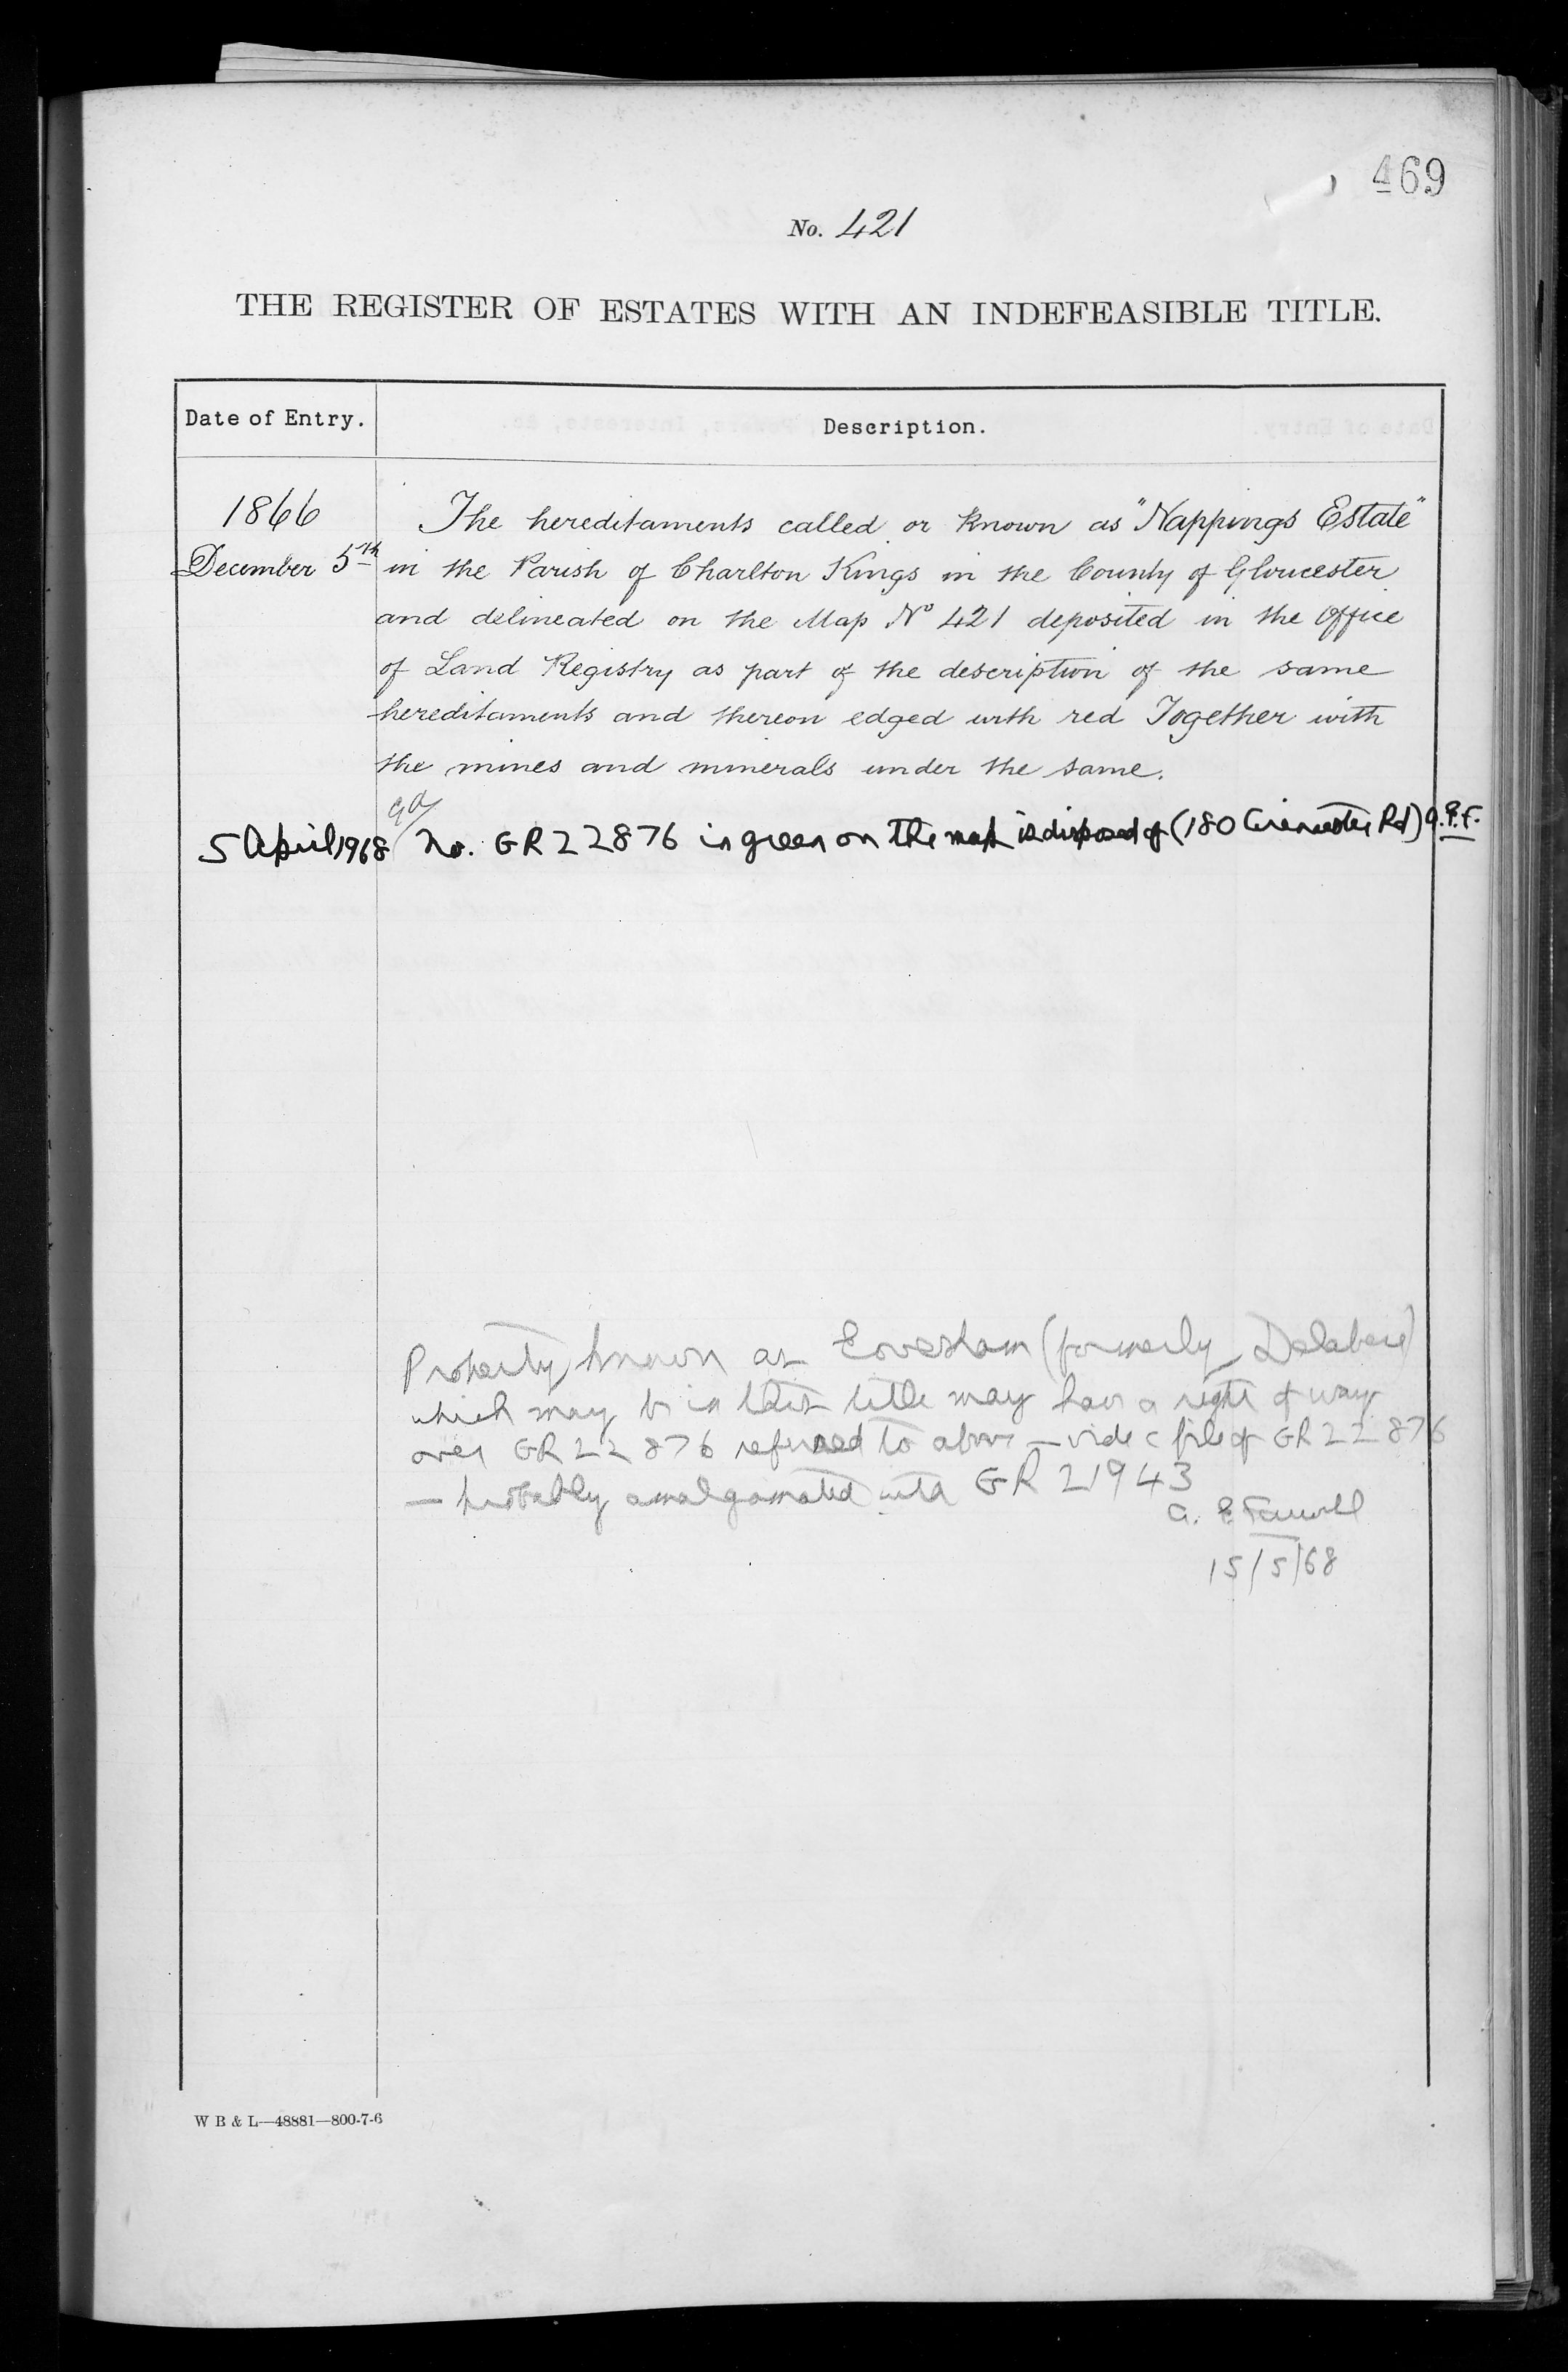 469
No. 421
THE REGISTER OF ESTATES WITH AN INDEFEASIBLE TITLE.
Date of Entry.
Description.
1866
December 5th
The hereditaments called or known as "Nappings Estate"
in the Parish of Charlton Kings in the County of Gloucester
and delineated on the Map No 421 deposited in the Office
of Land Registry as part of the description of the same
hereditaments and thereon edged with red Together with
the mines and minerals under the same.
5 April 1968 No. GR 22876 in green on the map is disposed of (180 Cirencester Rd)
Property known as (formerly Delabere)
which may be in this title may have a right of way
over GR 22876 referred to above — vide c file of GR 22876
— probably amalgamated into GR 21943
15/5/68
W B & L—48881—800-7-6